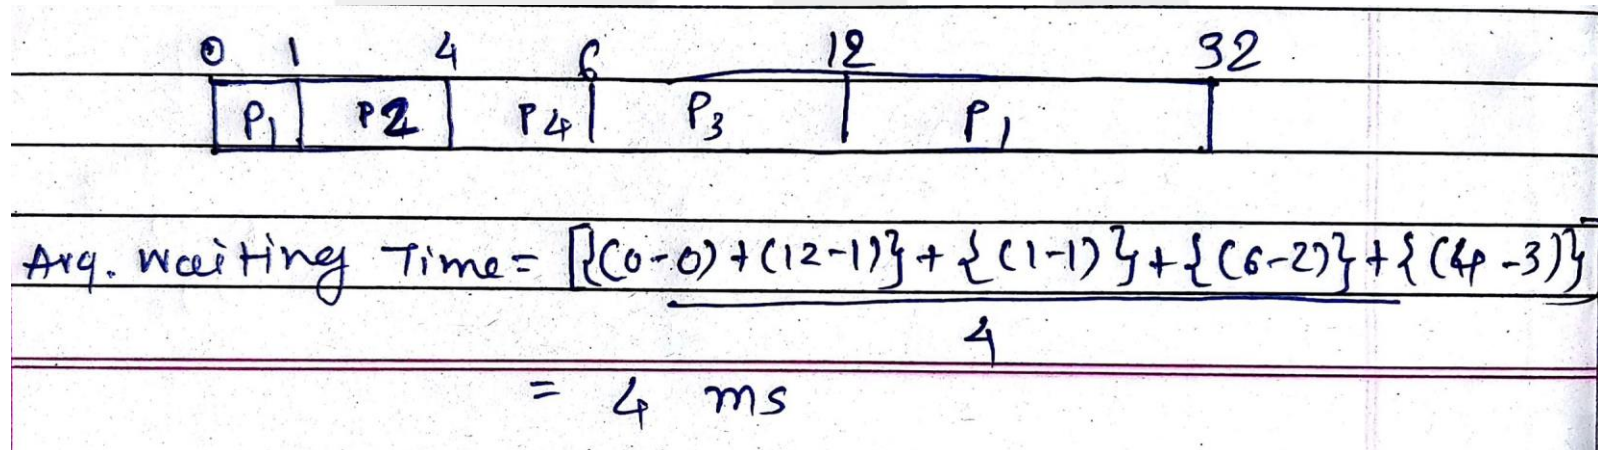 0 1 4 6 12 32
P1 P2 P4 P3 P1
Avg. Waiting Time = [{(0-0) + (12-1)} + {(1-1)} + {(6-2)} + {(4-3)}
4
= 4 ms